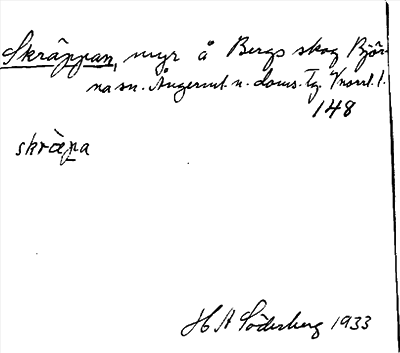 Skräppan, myr å Bergs skog Björ-
na sn. Ångerml. n. doms. Tg. V/norrl. l.
148
skràp̲a
H A Söderberg 1933